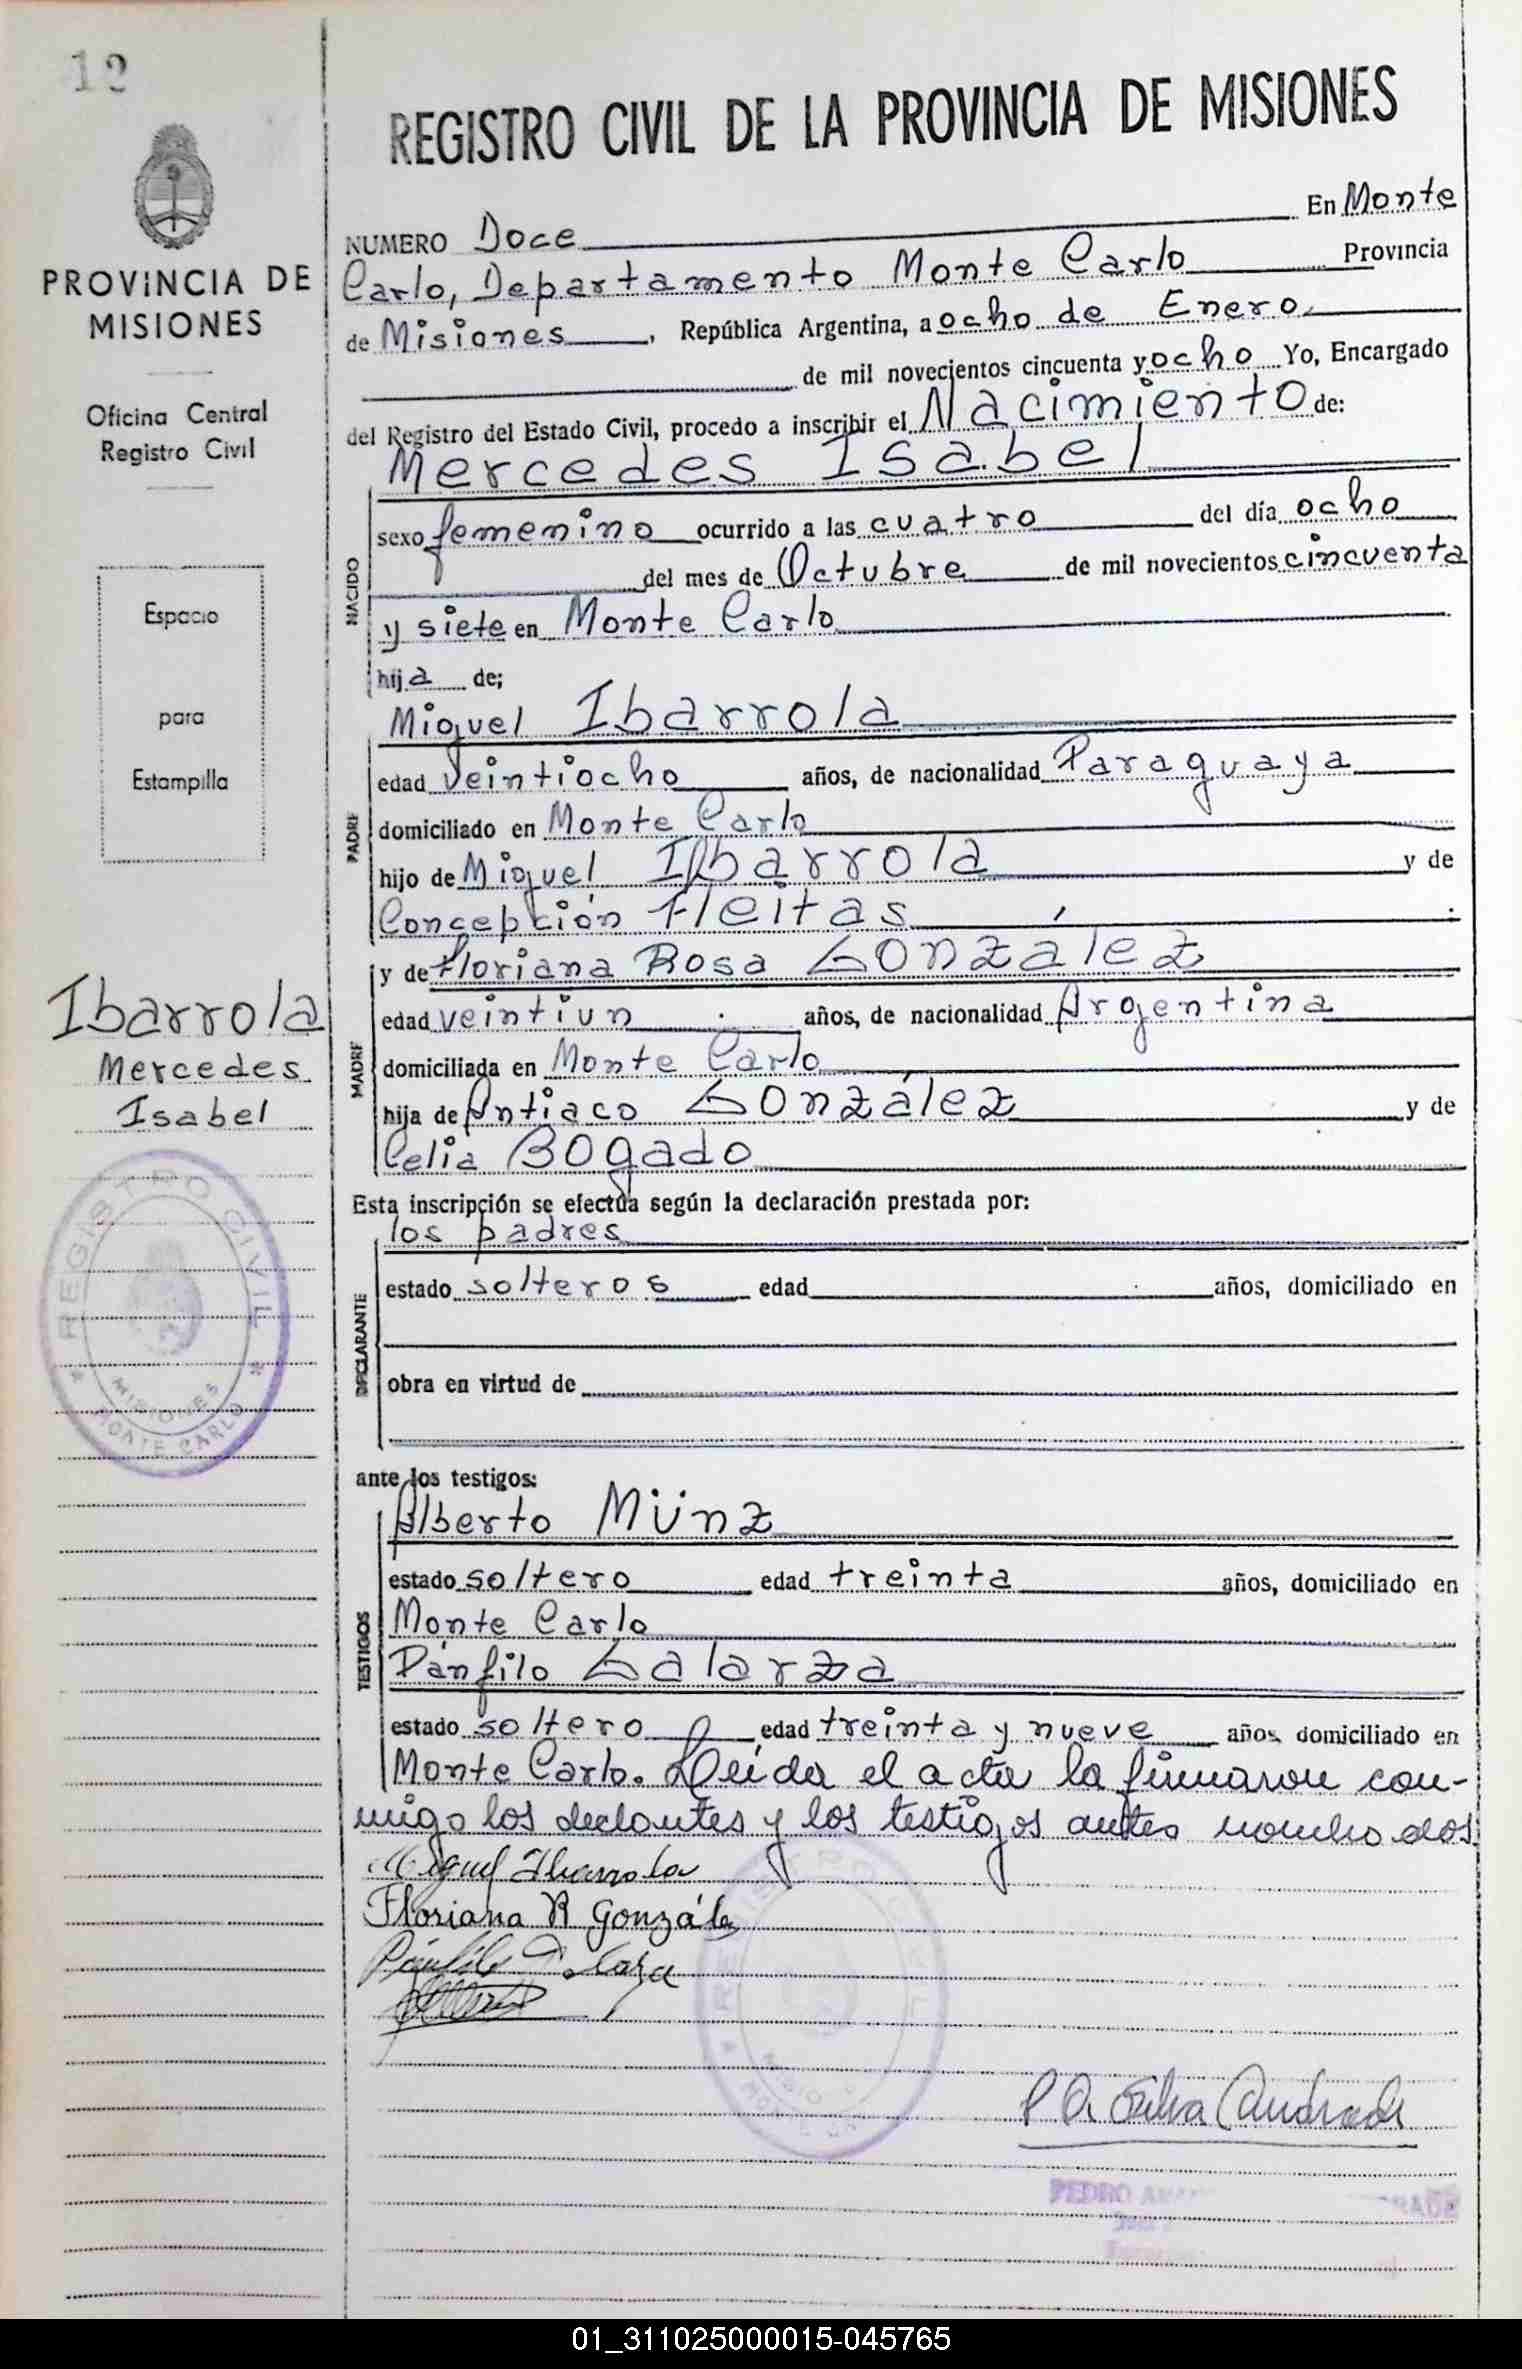 12
PROVINCIA DE
MISIONES
Oficina Central
Registro Civil
Espacio
para
Estampilla
Ibarrola
Mercedes
Isabel
REGISTRO CIVIL
MISIONES
MONTE CARLO
REGISTRO CIVIL DE LA PROVINCIA DE MISIONES
NUMERO Doce En Monte
Carlo, Departamento Monte Carlo Provincia
de Misiones, República Argentina, a ocho de Enero
de mil novecientos cincuenta y ocho Yo, Encargado
del Registro del Estado Civil, procedo a inscribir el Nacimiento de:
NACIDO
Mercedes Isabel
sexo femenino ocurrido a las cuatro del día ocho
del mes de Octubre de mil novecientos cincuenta
y siete en Monte Carlo
hija de;
PADRE
Miguel Ibarrola
edad veintiocho años, de nacionalidad Paraguaya
domiciliado en Monte Carlo
hijo de Miguel Ibarrola y de
Concepción Fleitas
MADRE
y de Floriana Rosa González
edad veintiun años, de nacionalidad Argentina
domiciliada en Monte Carlo
hija de Antiaco González y de
Celia Bogado
Esta inscripción se efectúa según la declaración prestada por:
DECLARANTE
los padres
estado solteros edad años, domiciliado en
obra en virtud de
ante los testigos:
TESTIGOS
Alberto Münz
estado soltero edad treinta años, domiciliado en
Monte Carlo
Pánfilo Galarza
estado soltero edad treinta y nueve años, domiciliado en
Monte Carlo. Leída el acta la firmaron con-
migo los declantes y los testigos antes nombrados
Miguel Ibarrola
Floriana R González
Pánfilo Galarza
P A Silva Andrade
PEDRO
01_311025000015-045765